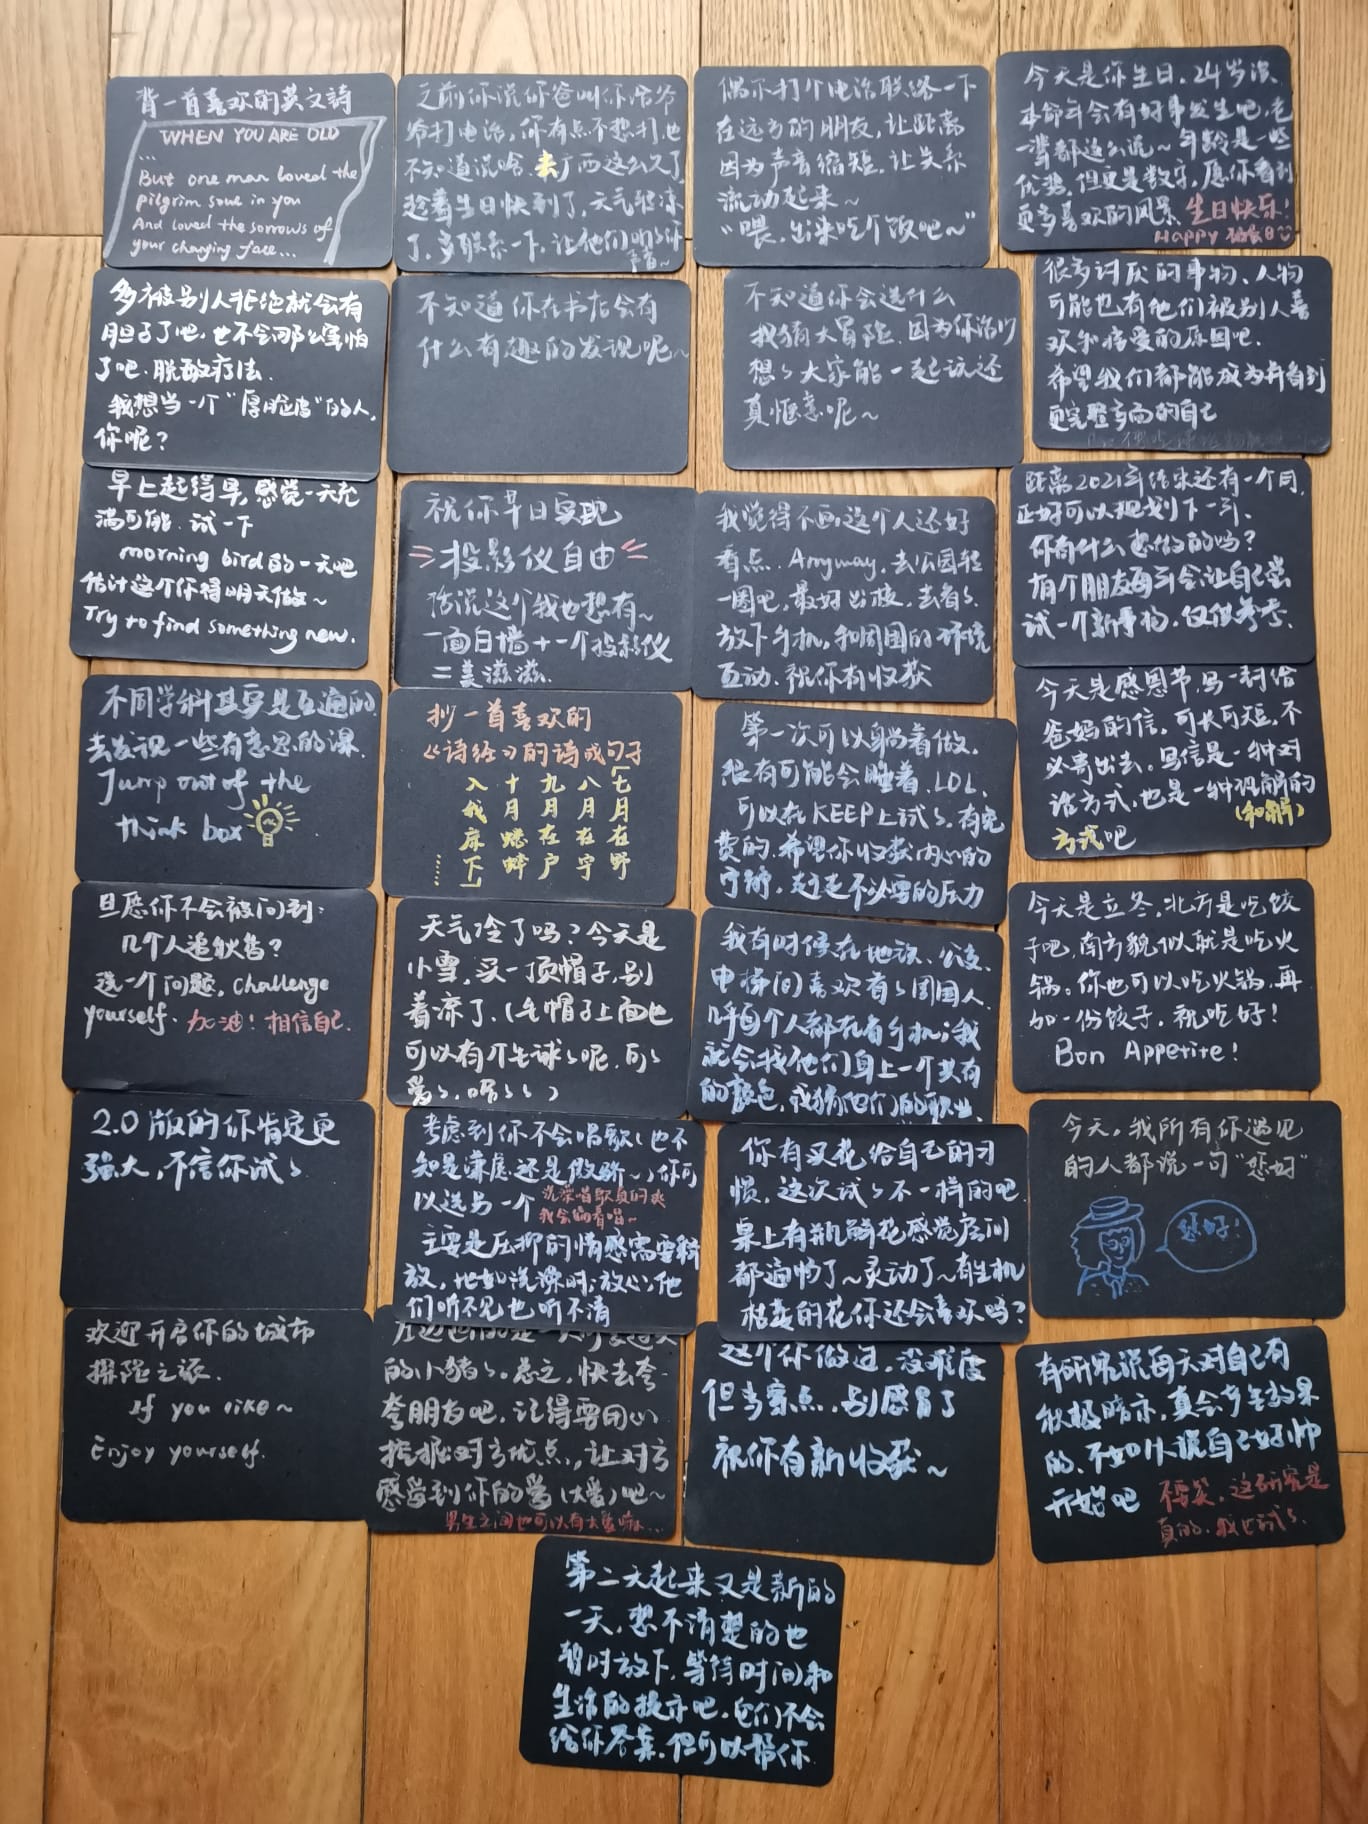 背一首喜欢的英文詩
WHEN YOU ARE OLD
...
But one man loved the
pilgrim soul in you
And loved the sorrows of
your changing face...
之前你说你爸叫你给爷
爷打电话,你有点不想打,也
不知道说啥.去广西这么久了,
趁着生日快到了,天气轻凉
了,多联系一下,让他们听听你
声音~
偶尔打个电话联络一下
在远方的朋友,让距离
因为声音缩短,让关系
流动起来~
“喂,出来吃个饭吧~”
今天是你生日,24岁没
本命年会有好事发生吧,老
一辈都这么说~年龄是一些
优势,但更是数字,愿你看到
更多喜欢的风景 生日快乐!
Happy
多被别人拒绝就会有
胆子了吧,也不会那么害怕
了吧.脱敏疗法.
我想当一个“厚脸皮”的人,
你呢?
不知道你在书店会有
什么有趣的发现呢~
不知道你会选什么
我猜大冒险.因为你说以
想想大家能一起玩还
真惬意呢~
很多讨厌的事物、人物
可能也有他们被别人喜
欢和接受的原因吧.
希望我们都能成为并看到
更完整多面的自己
早上起得早,感觉一天充
满可能.试一下
morning bird的一天吧
估计这个你得明天做~
Try to find something new.
祝你早日实现
投影仪自由
话说这个我也想有~
一面白墙+一个投影仪
=美滋滋.
我觉得不画这个人还好
看点. Anyway,去公园轻
一圈吧,最好出被,去看看.
放下手机,和周围的环境
互动.祝你有收获
距离2021年结束还有一个月,
正好可以规划下一年、
你有什么想做的吗?
有个朋友每年会让自己尝
试一个新事物.仅供参考.
不同学科其实是互通的.
去发现一些有意思的课.
Jump out of the
think box
抄一首喜欢的
《诗经》的诗或句子
「七月在野
八月在宇
九月在户
十月蟋蟀
入我床下」
......
第一次可以躺着做.
很有可能会睡着.LOL.
可以在KEEP上试试.有免
费的.希望你收获内心的
宁静,赶走不必要的压力
今天是感恩节,写一封给
爸妈的信,可长可短,不
必寄出去,写信是一种对
话方式,也是一种和解的
(和解)
方式吧
但愿你不会被问到:
几个人追你啦?
选一个问题,challenge
yourself. 加油!相信自己.
天气冷了吗?今天是
小雪,买一顶帽子,别
着凉了.(毛帽子上面也
可以有个毛球球呢,可可
爱爱,嘻嘻嘻)
我有时候在地铁、公交.
电梯间喜欢看看周围人,
几乎每个人都在看手机;我
就会找他们身上一个共有
的颜色,我猜他们的职业、
今天是立冬,北方是吃饺
子吧,南方貌似就是吃火
锅。你也可以吃火锅,再
加一份饺子,祝吃好!
Bon Appetite!
2.0版的你肯定更
强大,不信你试试
考虑到你不会唱歌(也不
知是谦虚还是傲娇~)你可
以选另一个 洗澡唱歌真的爽
我会偷着唱~
主要是压抑的情感需要释
放,比如洗澡时;放心,他
们听不见也听不清
你有买花给自己的习
惯,这次试试不一样的吧.
桌上有瓶鲜花感觉房间
都通畅了~灵动了~有生机
枯萎的花你还会喜欢吗?
今天,我所有你遇见
的人都说一句“您好”
您好!
欢迎开启你的城市
探险之旅.
If you like~
Enjoy yourself.
的小猪猪。总之,快去夸
夸朋友吧,记得要用心
挖掘对方优点,让对方
感受到你的爱(大爱)吧~
男生之间也可以有大爱嘛...
这个你做过,没难度
但当穿点,别感冒了
祝你有新收获~
有研究说每天对自己有
积极暗示,真会产生效果
的、不如从说自己好帅
开始吧 不要笑,这研究是
真的.我也试试.
第二天起来又是新的
一天,想不清楚的也
暂时放下,等待时间和
生活的提示吧.它们不会
给你答案,但可以帮你